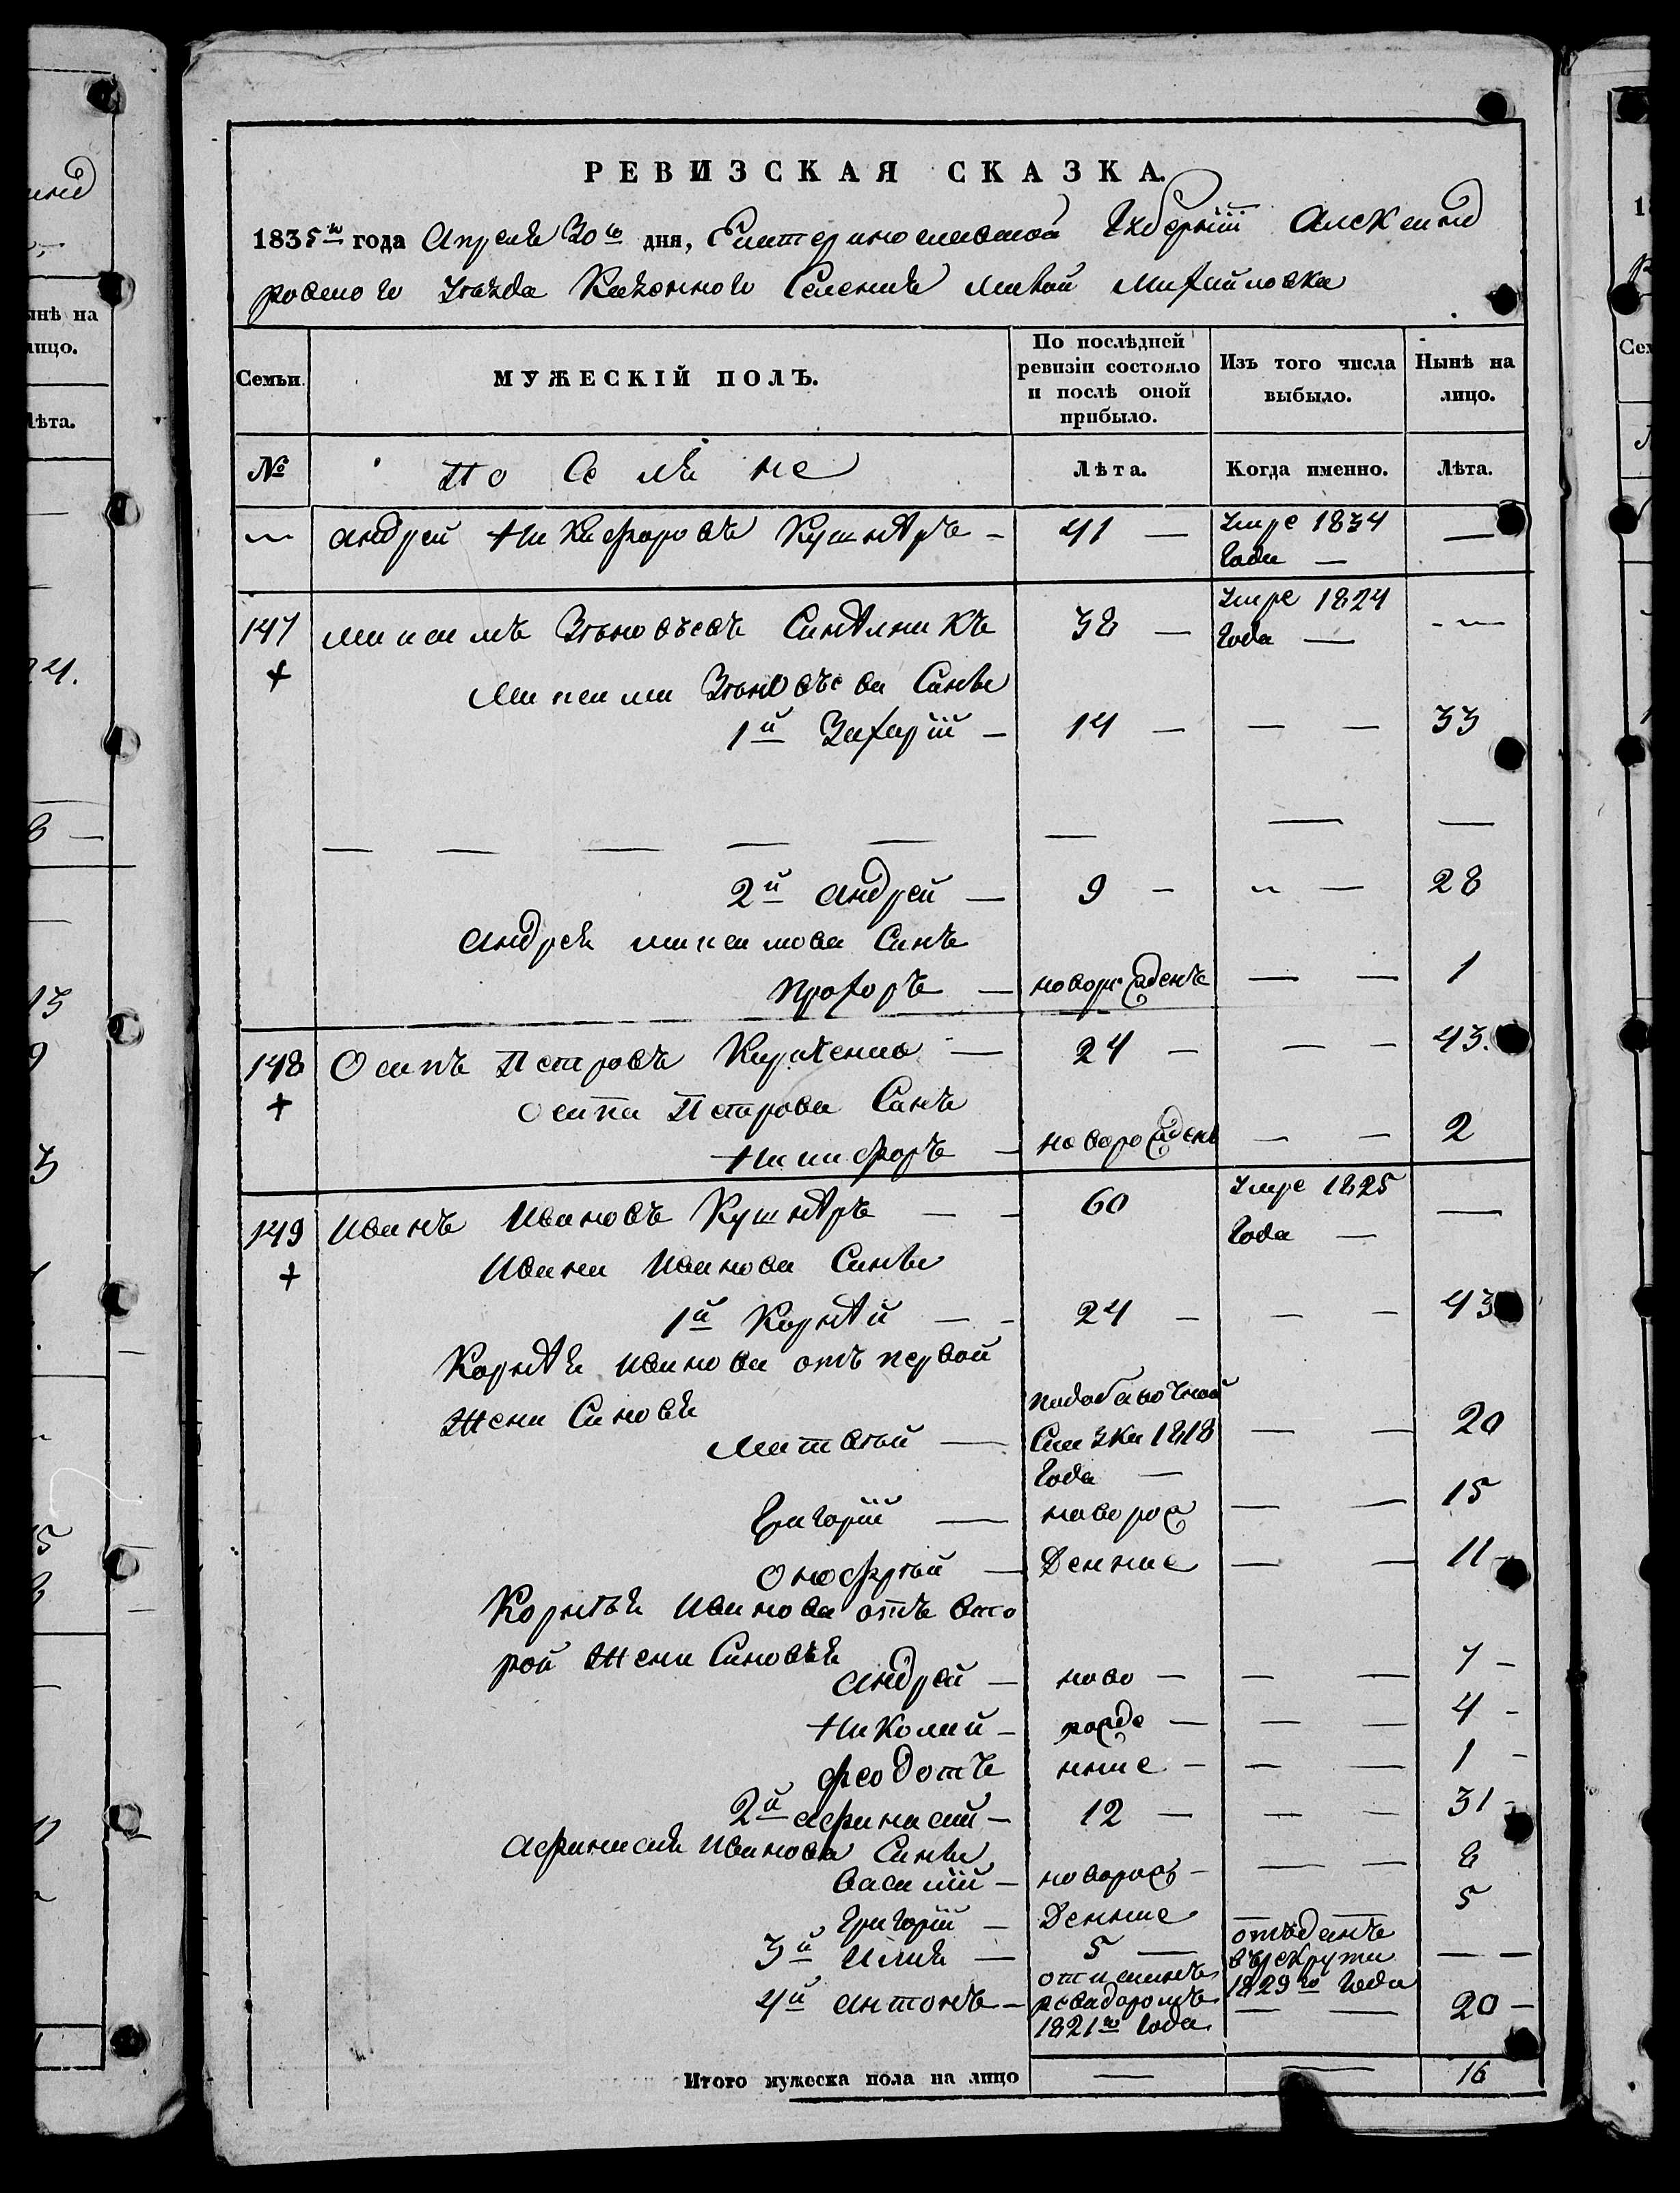 РЕВИЗСКАЯ СКАЗКА.
1835го года Апреля 30го дня, Екатеринославской Губернiи Александ
ровского Уезда Казенного Селенiя Малой Михайловка
Семьи. МУЖЕСКIЙ ПОЛЪ. По послѣдней ревизiи состояло и послѣ оной прибыло. Изъ того числа выбыло. Нынѣ на лицо.
№ Поселяне Лѣта. Когда именно. Лѣта.
Андрей Никифоровъ Кушнѣръ - 41 — Умре 1834 года — —
147 Максимъ Зѣновьевъ Синѣлникъ 38 — Умре 1824 года —
Максима Зѣновьева Сины
1й Захарiй — 14 — — — 33
2й Андрей — 9 — — 28
Андрея Максимова Синъ
Прохоръ — новорожденъ — — 1
148 Осипъ Петровъ — 24 — — — 43.
Осипа Петрова Синъ
Никифоръ — новорожденъ — — 2
149 Иванъ Ивановъ Кушнѣръ — — 60 Умре 1825 года — —
Ивана Иванова Сины
1й Корнѣй — - 24 — — — 43
Корнѣя Иванова отъ первой
жени Синовя
Матвѣй — подобавочной Сказки 1818 года — — — 20
Григорiй —новорож — — 15
Онофрѣй — денние — — 11 -
Корнѣя Иванова отъ вто
рой жени Синовья
Андрей — ново — — — 7 -
Николай — рожде — — — 4 -
Феодотъ нние — — — 1 -
2й Афанасий — 12 — — — 31 -
Афанасия Иванова Сины
Василiй — новорож - — — 8
Григорiй — Денние — — 5
3й Илия — 5 — отъданъ въ рекруты 1829го года — —
4й Антонъ — 1821го года — — 20 -
Итого мужеска пола на лицо — — 16